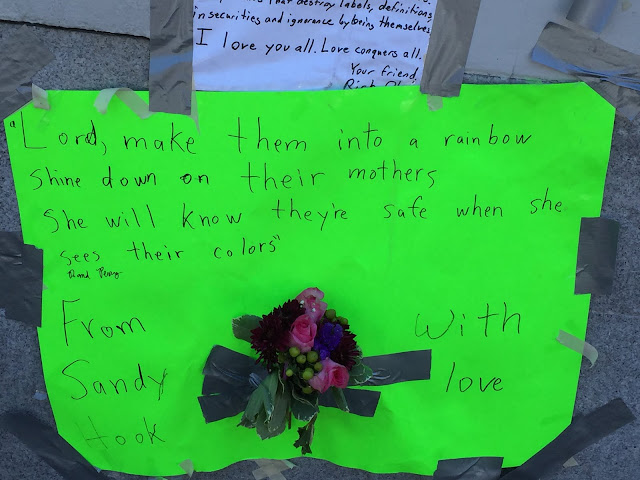 that destroy labels, definitions,
insecurities and ignorance by being themselves
I love you all. Love conquers all.
Your friend,
"Lord, make them into a rainbow
Shine down on their mothers
She will know they're safe when she
sees their colors"
Band Perry
From
Sandy
Hook
With
love